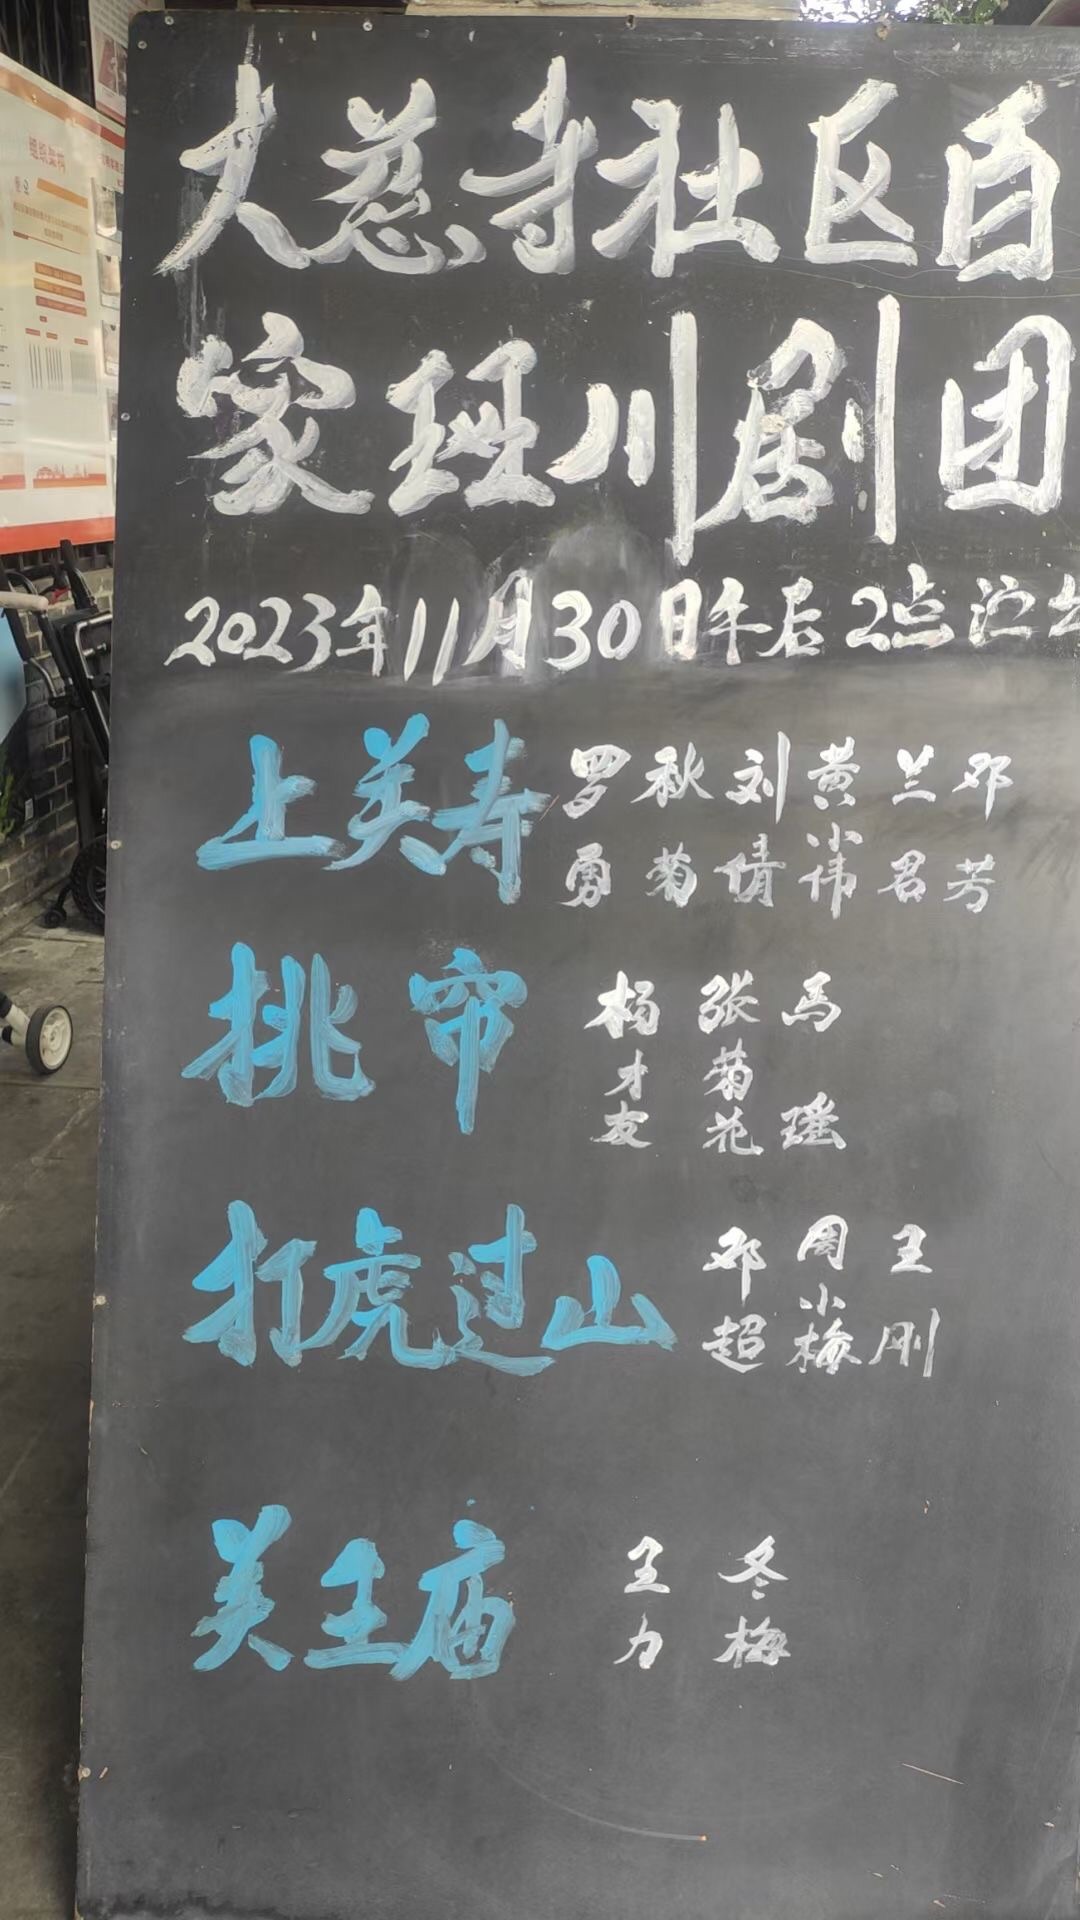 大慈寺社区百
家班川剧团
2023年11月30日午后2点演出
上关寿 罗勇 秋菊 刘倩 黄小伟 兰君 邓芳
挑帘 杨才友 张菊花 马瑶
打虎过山 邓超 周小梅 王刚
关王庙 王力 冬梅
组织架构